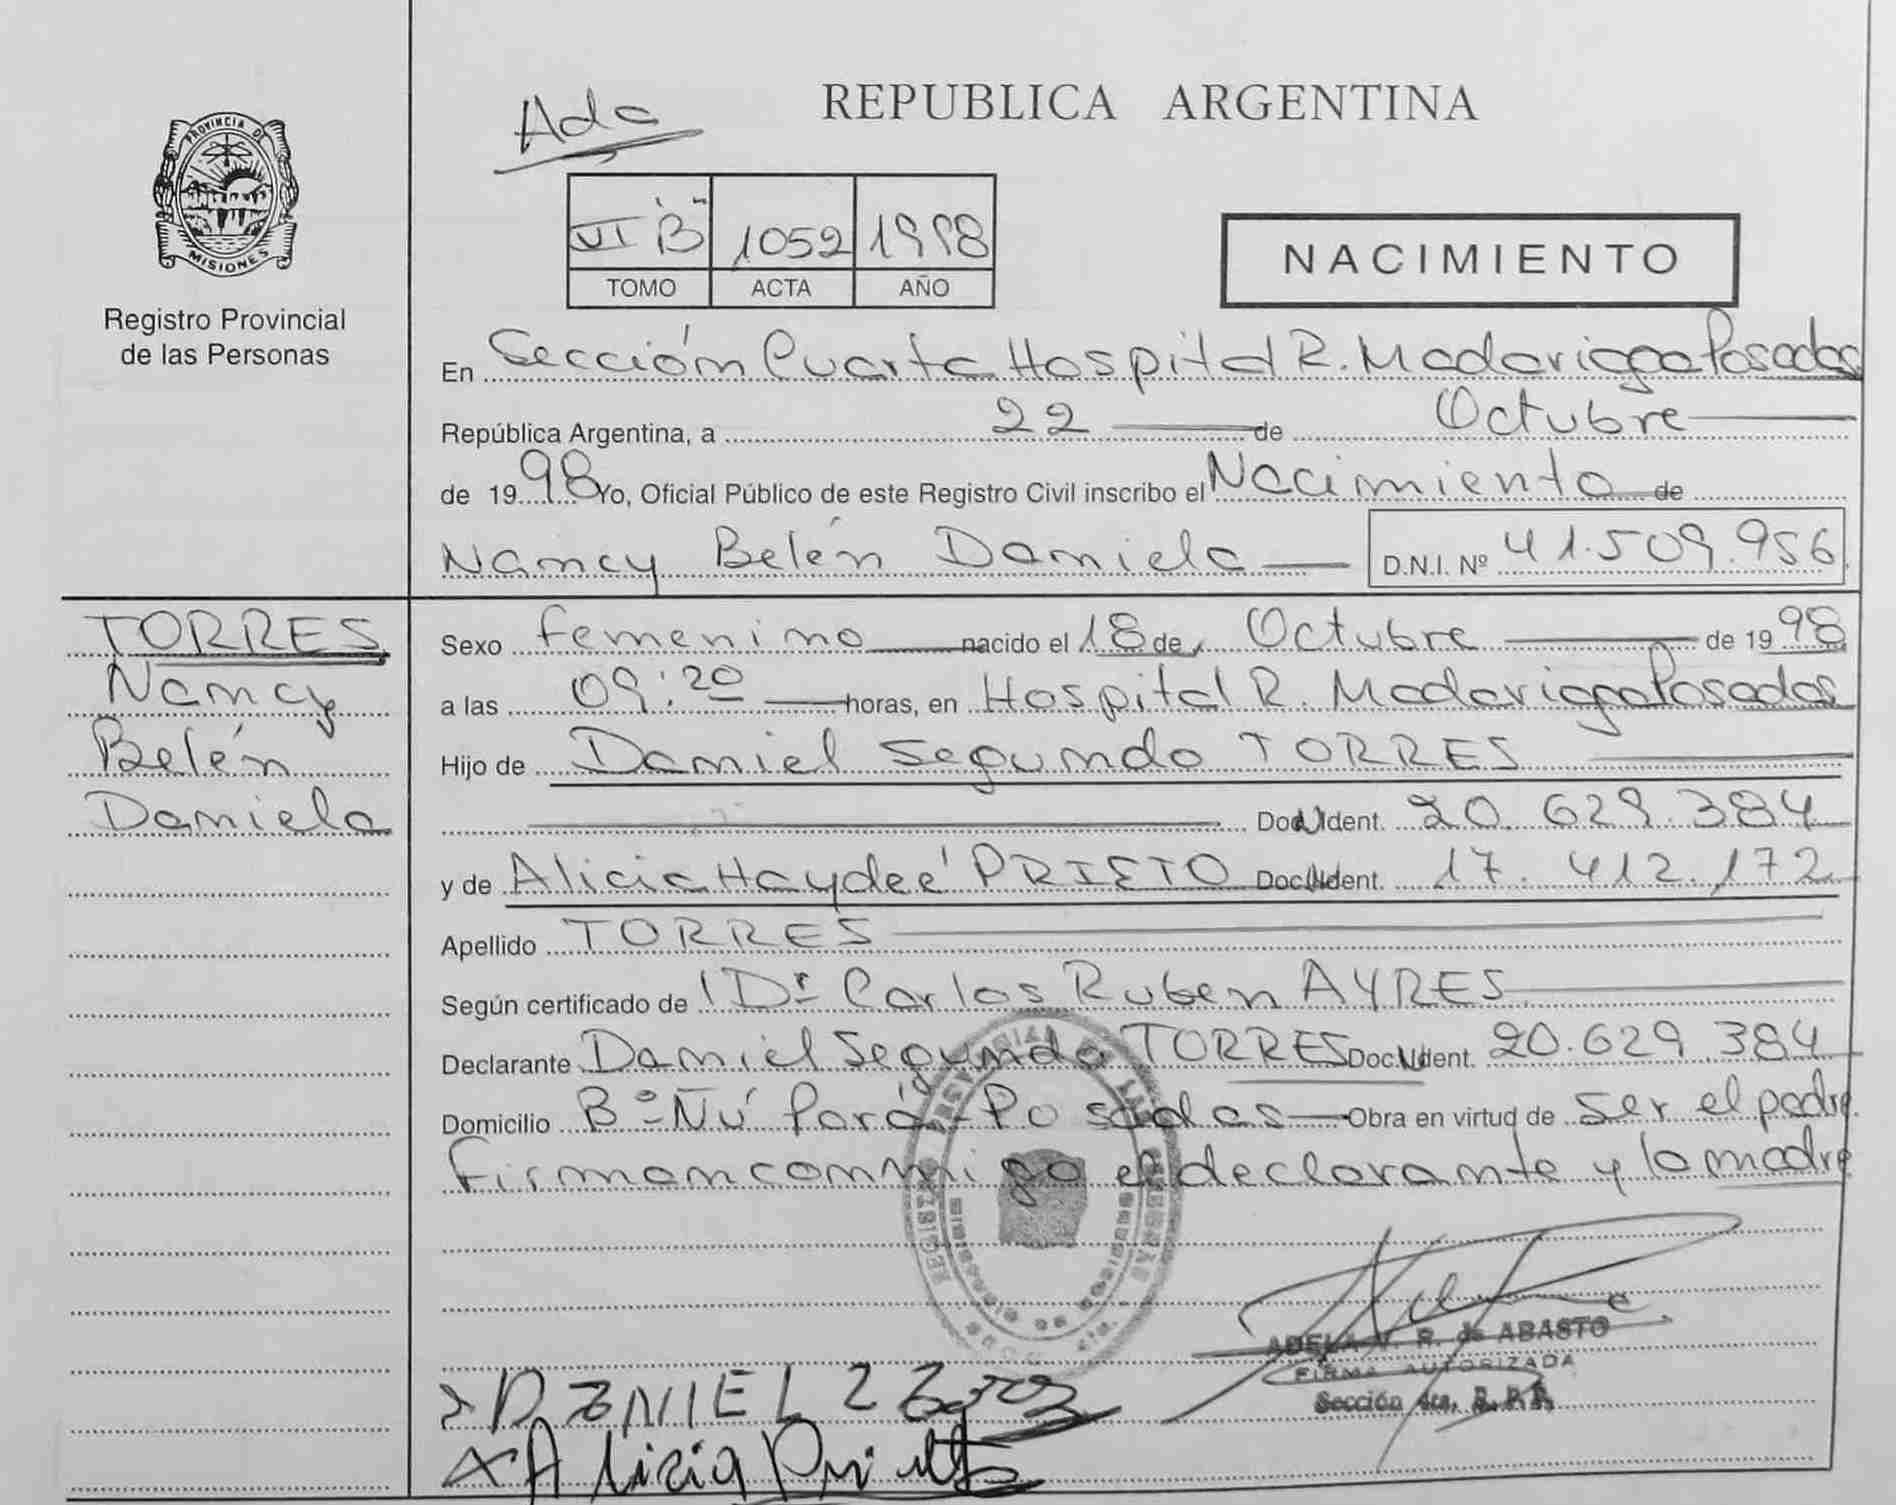 PROVINCIA DE
MISIONES
Registro Provincial
de las Personas
Ada
REPUBLICA ARGENTINA
VI "B" 1052 1998
TOMO ACTA AÑO
NACIMIENTO
En Sección Cuarta Hospital R. Madariaga Posadas
República Argentina, a 22 de Octubre
de 1998 Yo, Oficial Público de este Registro Civil inscribo el Nacimiento de
Nancy Belén Daniela D.N.I. Nº 41.509.956
TORRES
Nancy
Belén
Daniela
Sexo femenino nacido el 18 de Octubre de 1998
a las 09:20 horas, en Hospital R. Madariaga Posadas
Hijo de Daniel Segundo TORRES
Doc. Ident. 20.629.384
y de Alicia Haydeé PRIETO Doc. Ident. 17.412.172
Apellido TORRES
Según certificado de Dr Carlos Ruben AYRES
Declarante Daniel Segundo TORRES Doc. Ident. 20.629.384
Domicilio Bº Ñú Porá - Posadas Obra en virtud de ser el padre
Firman conmigo el declarante y la madre
ADELA R. de ABASTO
FIRMA AUTORIZADA
Sección 4ta. R. P. P.
DANIEL
Alicia Prieto